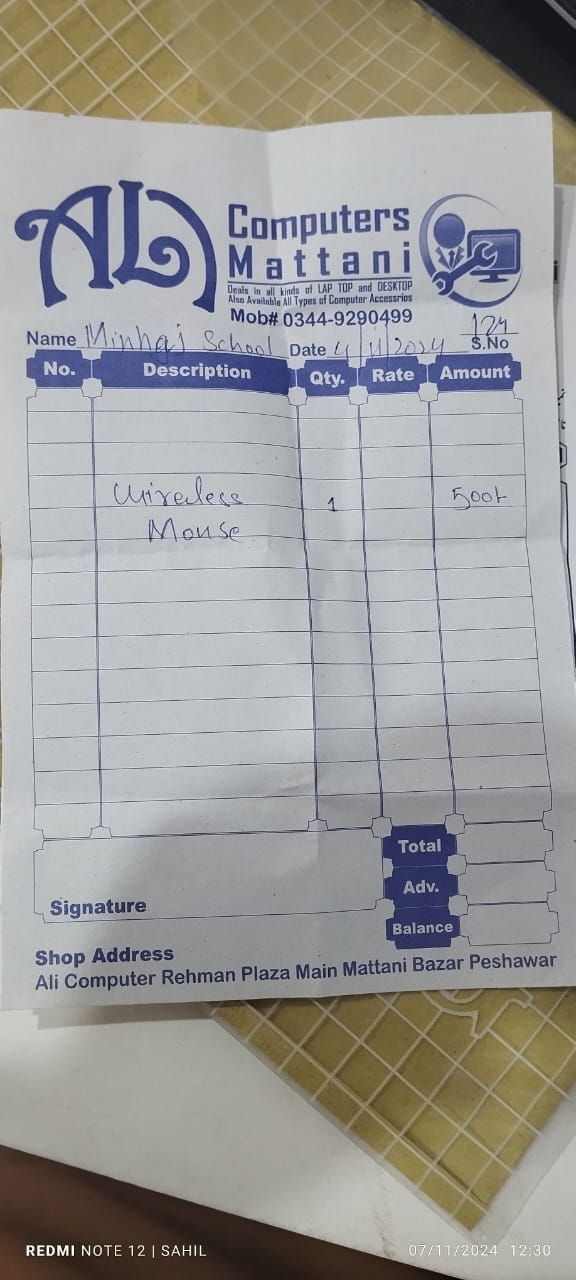 ALI
Computers
Mattani
Deals in all kinds of LAP TOP and DESKTOP
Also Available All Types of Computer Accessrios
Mob# 0344-9290499
Name Minhaj School Date 4/11/2024 124 S.No
No. Description Qty. Rate Amount
Wireless 1 500/-
Mouse
Total
Adv.
Signature
Balance
Shop Address
Ali Computer Rehman Plaza Main Mattani Bazar Peshawar
REDMI NOTE 12 | SAHIL 07/11/2024 12:30